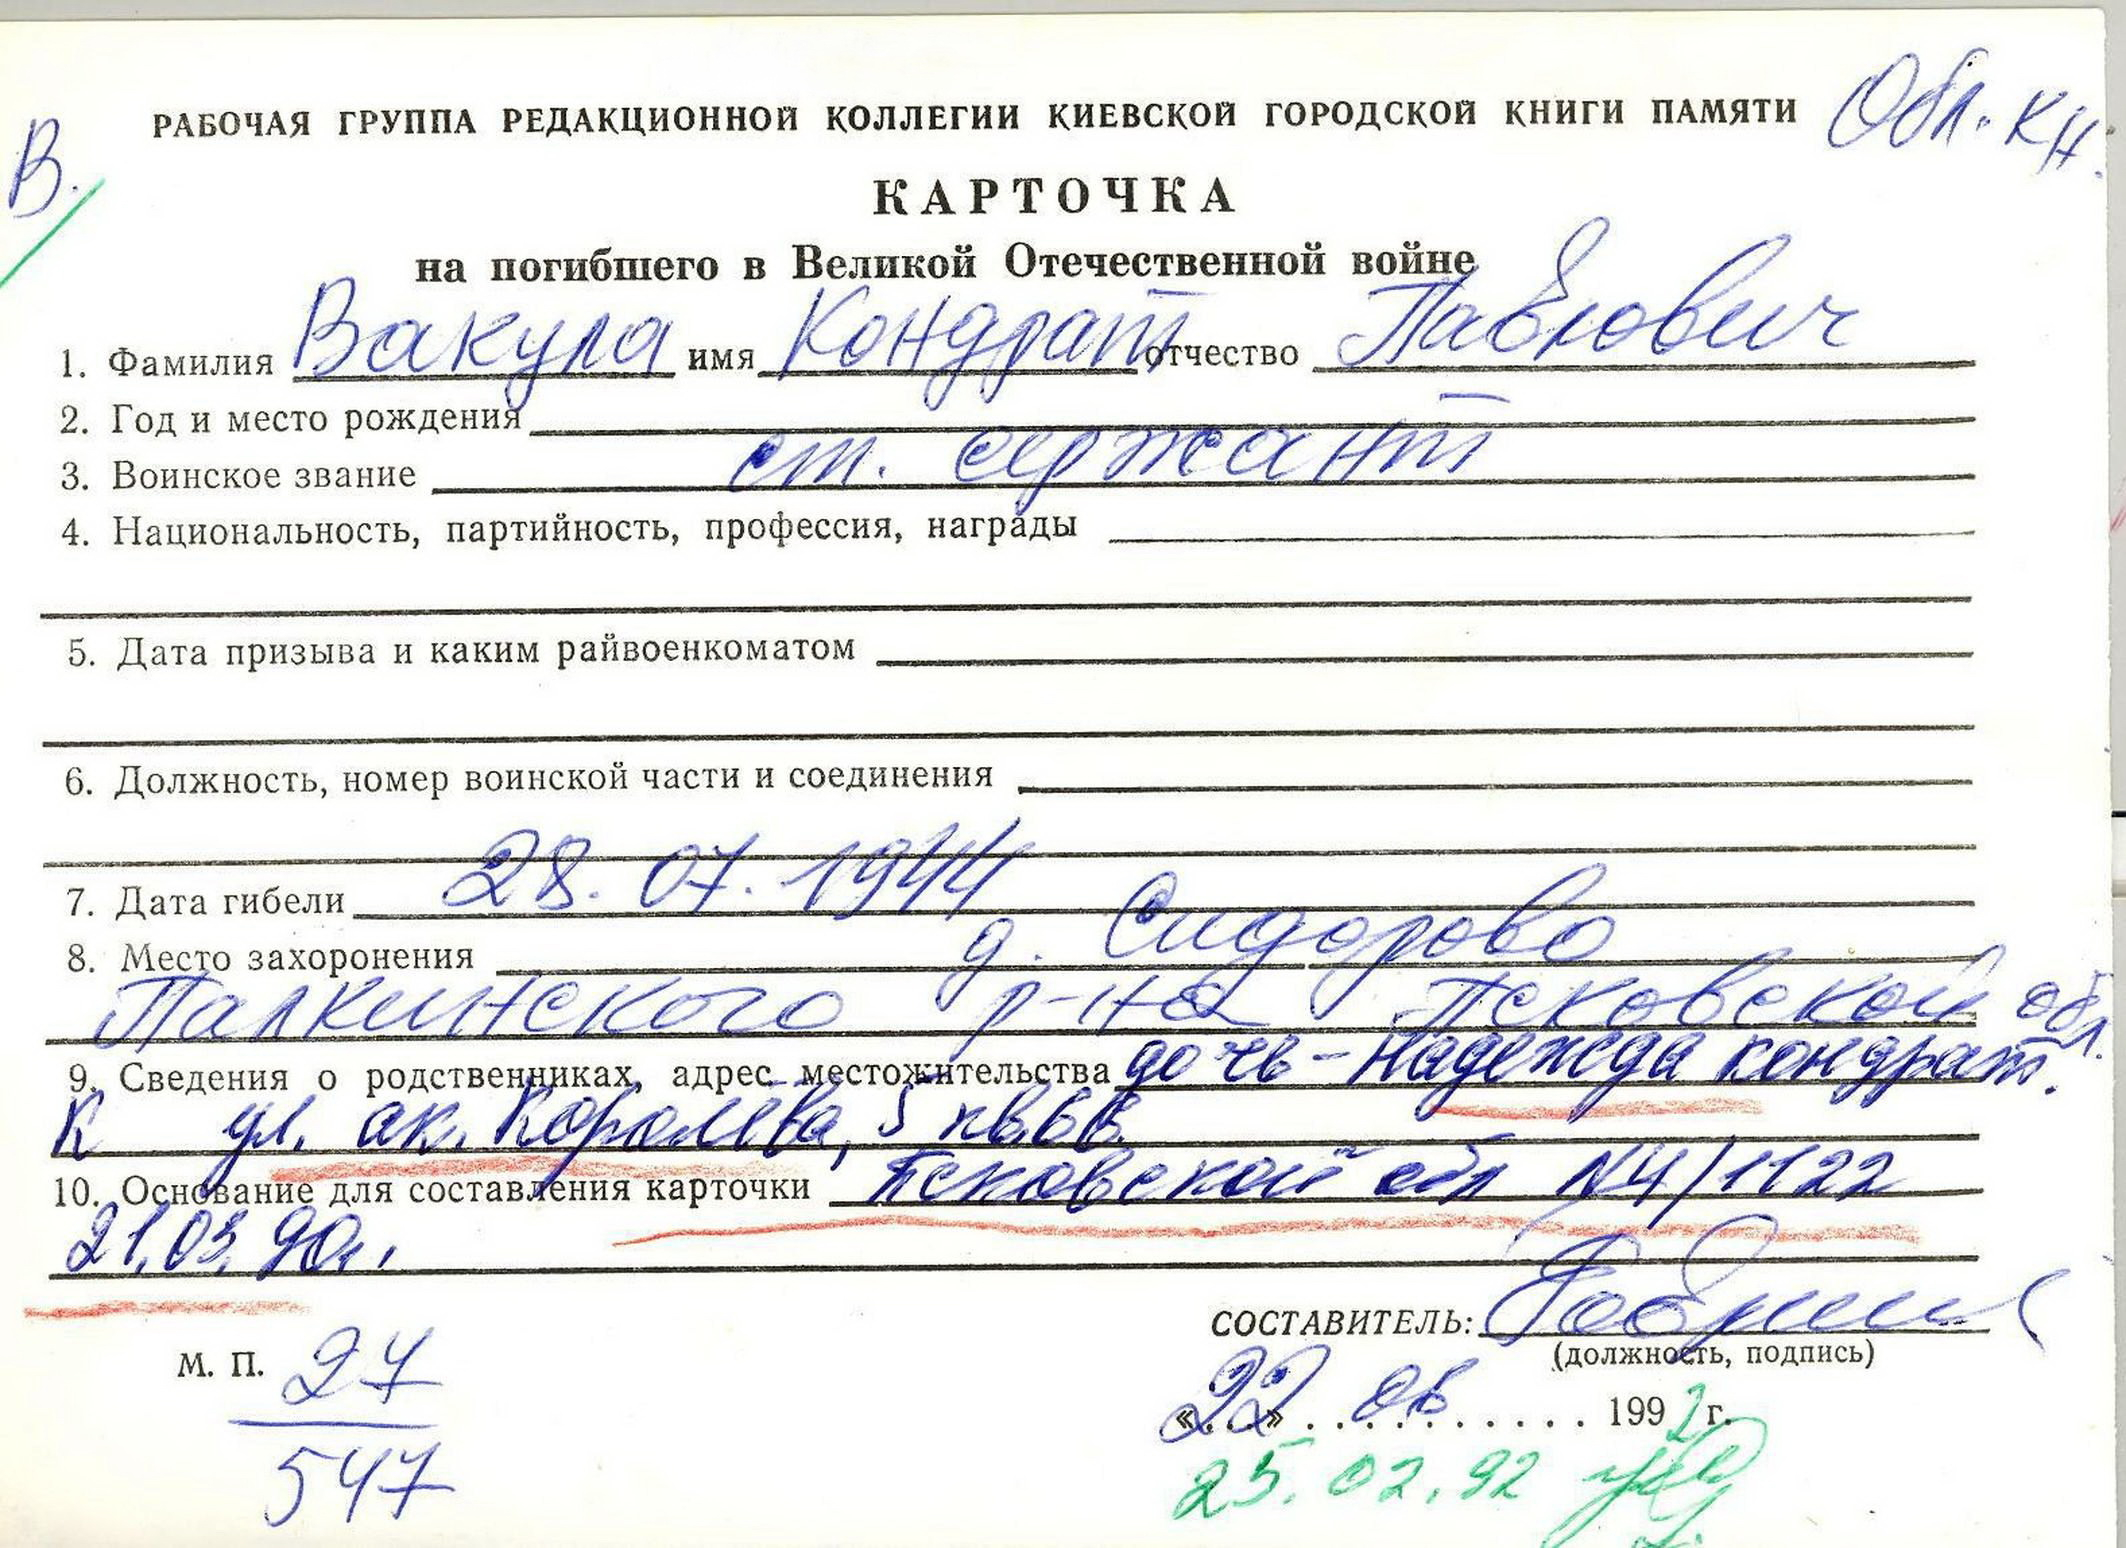 Обл. кн.
В.
РАБОЧАЯ ГРУППА РЕДАКЦИОННОЙ КОЛЛЕГИИ КИЕВСКОЙ ГОРОДСКОЙ КНИГИ ПАМЯТИ
КАРТОЧКА
на погибшего в Великой Отечественной войне
1. Фамилия Вакула имя Кондрат отчество Павлович
2. Год и место рождения
3. Воинское звание ст. сержант
4. Национальность, партийность, профессия, награды
5. Дата призыва и каким райвоенкоматом
6. Должность, номер воинской части и соединения
7. Дата гибели 28.07.1944
8. Место захоронения д. Сидорово
Палкинского р-на Псковской обл.
9. Сведения о родственниках, адрес местожительства дочь - Надежда Кондрат.
К ул. ак. Королёва, 5 кв.
10. Основание для составления карточки Псковской обл N4/1122
21.03.90г.
СОСТАВИТЕЛЬ:
(должность, подпись)
М. П. 27
547
«22» 1992 г.
25.02.92